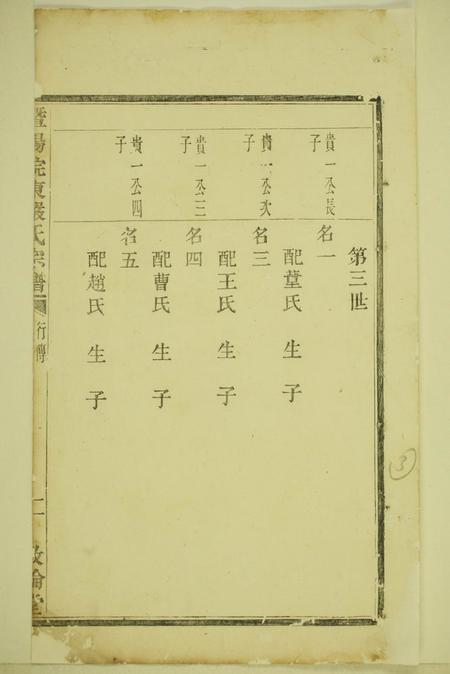 第三世
貴一公長子
名一
配堂氏 生 子
貴一公次子
名三
配王氏 生 子
貴一公三子
名四
配曹氏 生 子
貴一公四子
名五
配趙氏 生 子
暨陽浣東嚴氏宗譜 行傳 二 敘倫堂
3